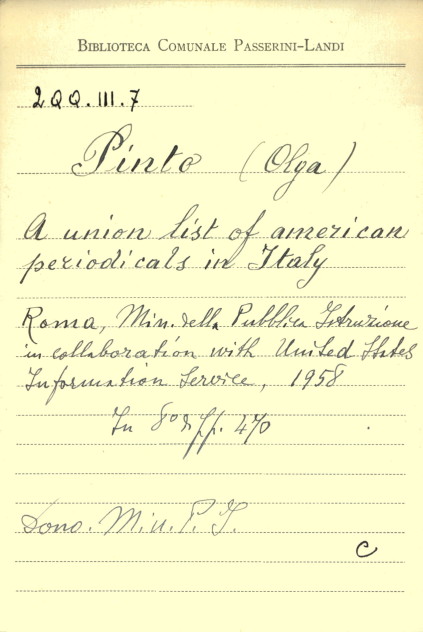 BIBLIOTECA COMUNALE PASSERINI-LANDI
2QQ.III.7
Pinto (Olga)
A union list of american
periodicals in Italy
Roma, Min. della Pubblica Istruzione
in collaboration with United States
Information Service, 1958
In 8° di pp. 470
Dono. Min. P. I.
C